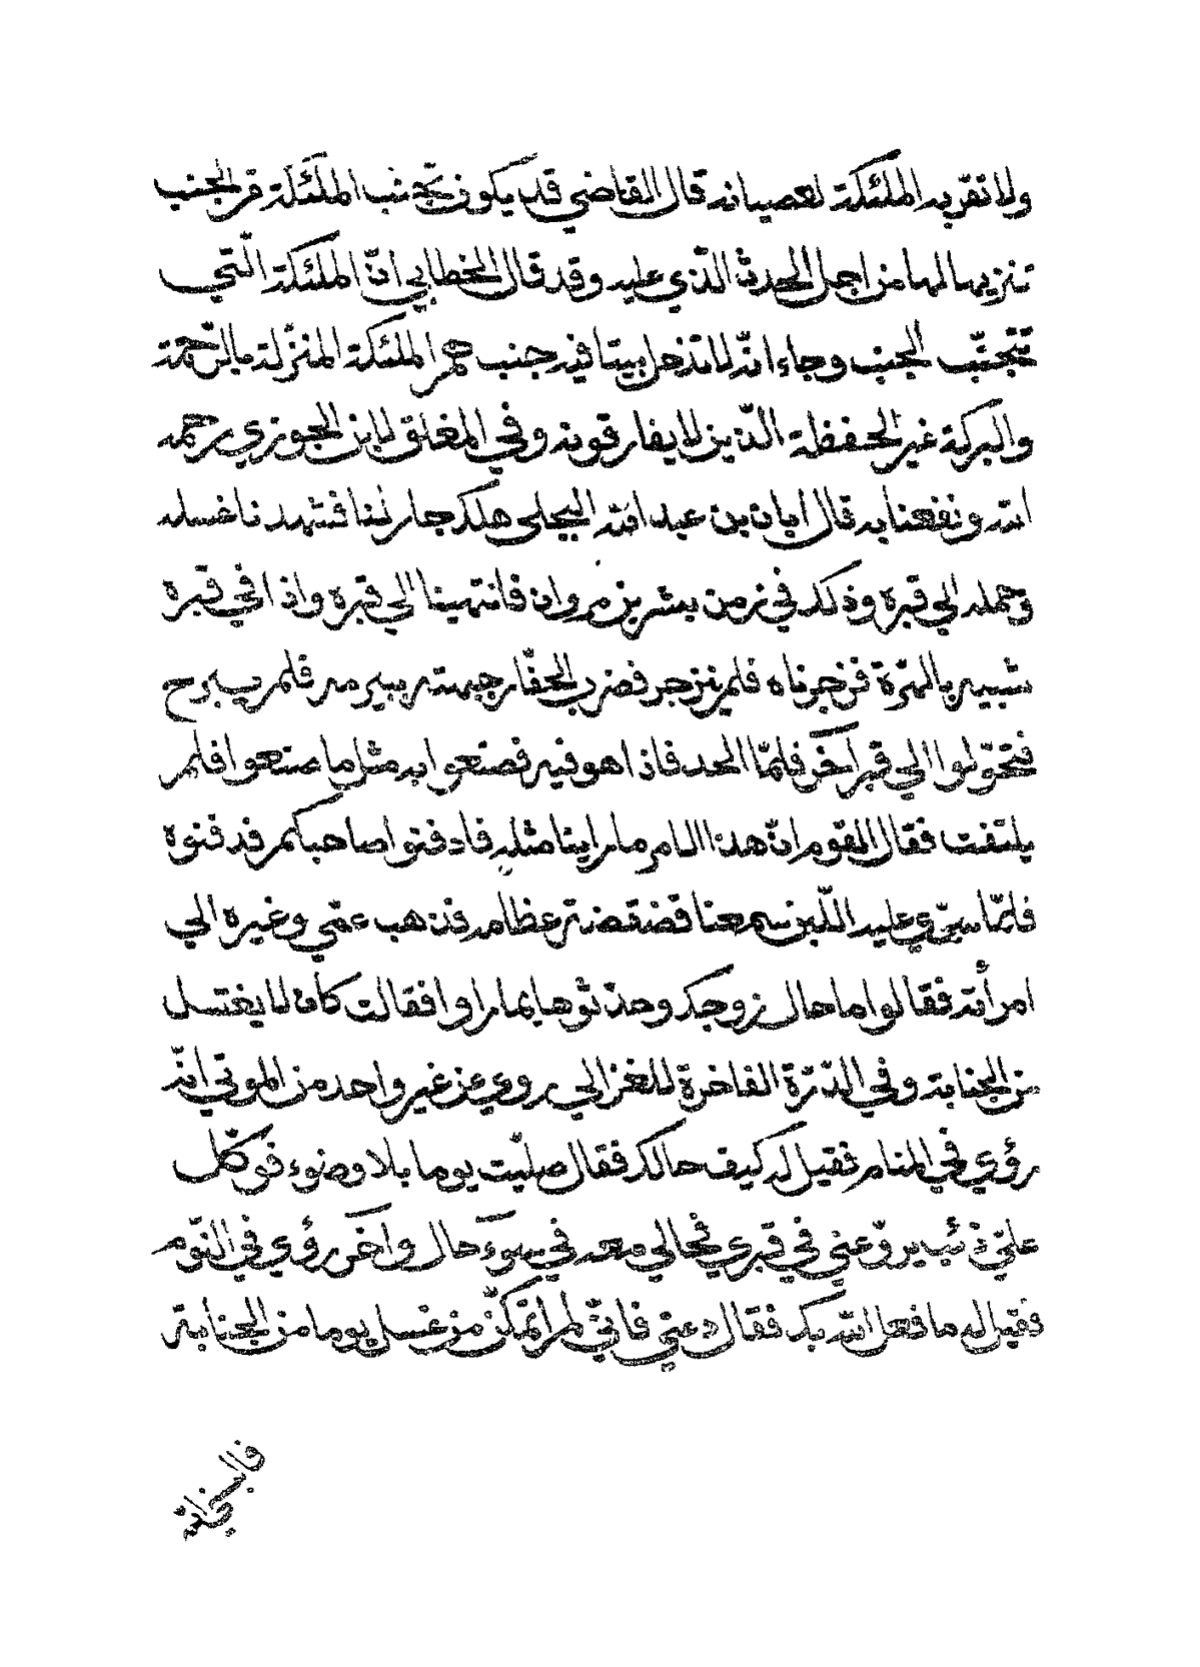 ولا تقربه الملئكة لعصيانه قال القاضي قد يكون تجنب الملئكة من الجنب
تنزيها لها من اجل الحدث الذي عليه وقد قال الخطابي انّ الملئكة الّتي
تتجنّب الجنب وجاء انّه لا تدخل بيتا فيه جنب هم الملئكة المنزّلة بالرّحمة
والبركة غير الحفظة الّذين لا يفارقونه وفي المغلق لابن الجوزي رحمه
الله ونفعنا به قال ابان بن عبد الله البجلي هلك جار لنا فشهدنا غسله
وحمله الي قبره وذلك في زمن بشر بن مروان فانتهينا الي قبره واذا في قبره
شبيه بالهرّة فزجرناه فلم ينزجر فضرب الحفّار جبهته ببيرمه فلم يبرح
فتحوّلوا الي قبر آخر فلمّا الحد فاذا هو فيه فصنعوا به مثل ما صنعوا فلم
يلتفت فقال القوم انّ هذا الامر ما راينا مثله فادفنوا صاحبكم فدفنوه
فلمّا سوّي عليه اللّبن سمعنا قضقضة عظامه فذهب عمّي وغيره الي
امرأته فقالوا ما حال زوجك وحدّثوها بما راوا فقالت كان لا يغتسل
من الجنابة وفي الدّرّة الفاخرة للغزالي روي عن غير واحد من الموتي انّه
رؤي في المنام فقيل له كيف حالك فقال صلّيت يوما بلا وضوء فوكّل
عليّ ذئب يروّعني في قبري فحالي معه في سوء حال وآخر رؤي في النّوم
فقيل له ما فعل الله بك فقال دعني فانّي لم اتمكّن من غسل يوما من الجنابة